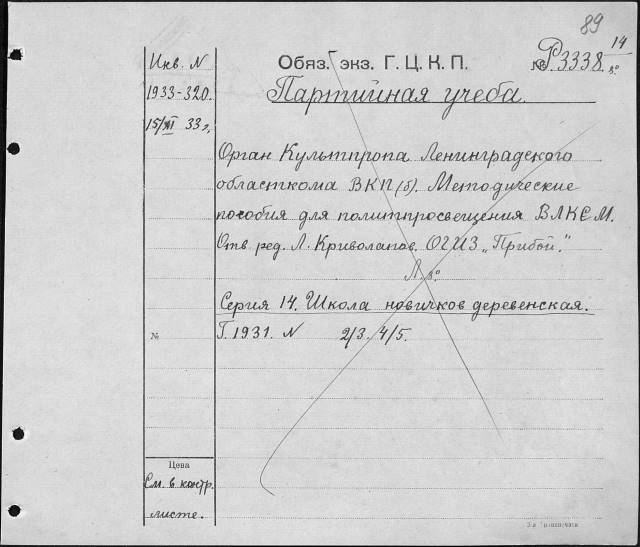 89
Инв. N
1933-320.
15/XII 33 г.
Обяз. экз. Г. Ц. К. П.
№ Р3338 14 8°
Партийная учеба.
Орган Культпропа Ленинградского
областкома ВКП(б). Методические
пособия для политпросвещения ВЛКСМ.
Отв. ред. Л. Криволапов. ОГИЗ „Прибой."
Л. 8°
Серия 14. Школа новичков деревенская.
№
Г. 1931. N 2/3. 4/5.
Цена
См. в контр.
листе.